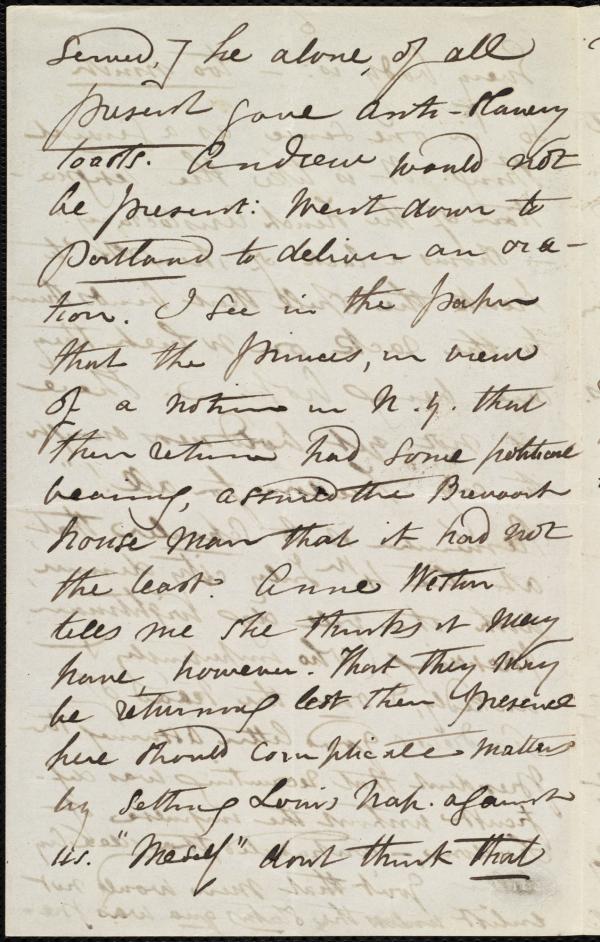 served, & he alone, of all
present gave anti-slavery
toasts. Andrew would not
be present: Went down to
Portland to deliver an ora-
tion. I see in the paper
that the Princes, in view
of a notion in N.Y. that
their return had some political
bearing, assured the Brevoort
house man that it had not
the least. Anne Weston
tells me she thinks it may
have however. That they may
be returning lest their presence
here should complicate matters
by setting Louis Nap. against
us. "Meself" dont think that